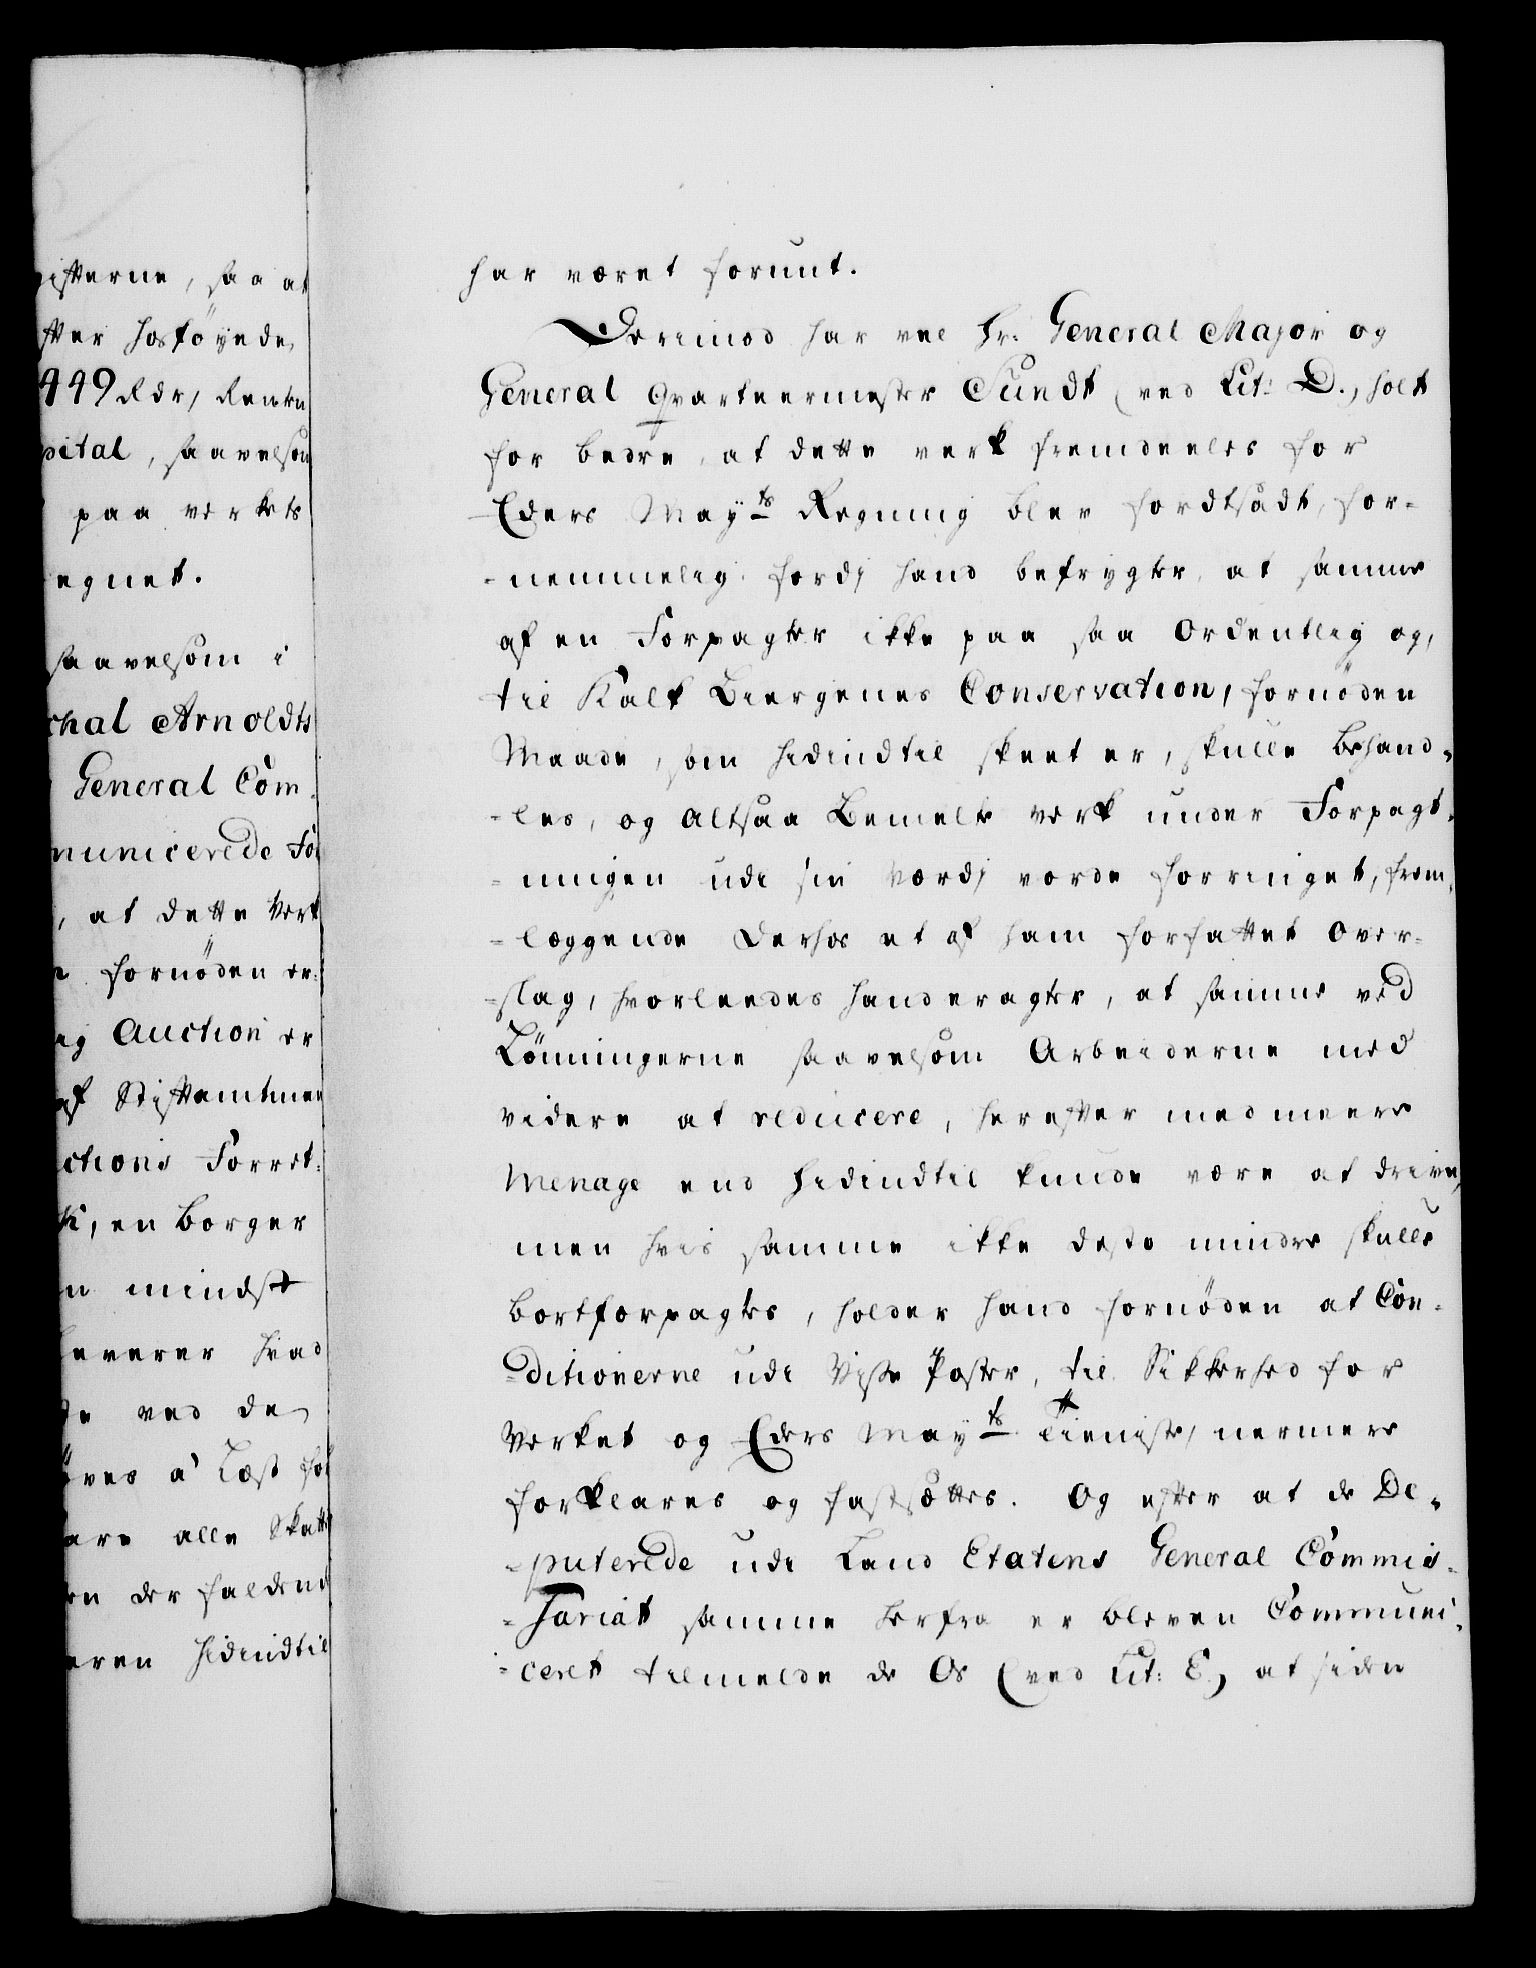 gifterne, saa at
fter hosföyede
449 Rdr, Renten
pital, saavelsom
paa verkets
egnet.
saavelsom i
chal Arnoldts
General Com-
municerede For
, at dette Verk
fornöden er-
ig Auction er
af Stiftamtman
ctions Forret-
K, en borger
n mindst
leverer hvad
te ved de
öves a Læst for
are alle Skatte
en der faldende
eren hidindtil
har været forunt.
Derimod har vel Hr: General Major og
General Qvarteermester Sundt (ved Lit: D.) holt
for bedre, at dette verk fremdeeles for
Eders Mayts Regning blev fordtsådt, for-
-nemmelig fordj hand befrygter, at samme
af en Forpagter ikke paa saa Ordentlig og,
til Kalk Biergenes Conservation, fornöden
Maade, som hidindtil skeet er, skulle behand-
-les, og altsaa Bemelte verk under Forpagt-
-ningen udi sin værdj vorde forringet, frem-
-læggende derhos et af ham forfattet Over-
-slag, hvorleedes hand eragter, at samme ved
Lönningerne saavelsom Arbeiderne med
videre at reducere, herefter med meere
Menage end hidindtil kunde være at drive,
men hvis samme ikke desto mindre skulle
bortforpagtes, holder hand fornöden at Con-
-ditionerne udi Visse Poster, til Sikkerhed for
Verket og Eders Mayts Tieniste, nermere
forklares og fastsættes. Og efter at de De-
-puterede udi Land Etatens General Commis-
-sariat samme herfra er bleven Communi-
-ceret tilmelde de Os (ved Lit: E.) at siden